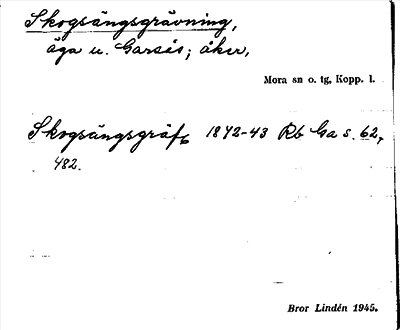 Skogsängsgrävning,
äga u. Garsås; åker,
Mora sn o. tg, Kopp. l.
Skogsängsgräf 1842-43 Rb Ga s. 62,
482.
Bror Lindén 1945.